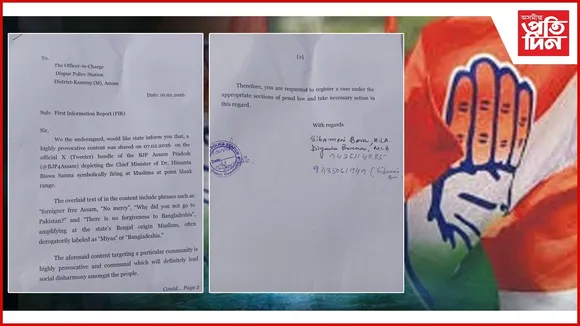 অসমীয়া
প্রতিদিন
To,
The Officer-in-Charge
Dispur Police Station
District-Kamrup (M), Assam
Date: 10.02.2026
Sub: First Information Report (FIR)
Sir,
We the undersigned, would like state inform you that, a
highly provocative content was shared on 07.02.2026 on the
official X (Tweeter) handle of the BJP Assam Pradesh
(@BJP4Assam) depicting the Chief Minister of Dr. Himanta
Biswa Sarma symbolically firing at Muslims at point blank
range.
The overlaid text of in the content include phrases such as
"foreigner free Assam, "No mercy", "Why did you not go to
Pakistan?" and "There is no forgiveness to Bangladeshis",
amplifying at the state's Bengal origin Muslims, often
derogatorily labeled as "Miyas" or "Bangladeshis."
The aforesaid content targeting a particular community is
highly provocative and communal which will definitely lead
social disharmony amongst the people.
Contd... Page 2
[2]
Therefore, you are requested to register a case under the
appropriate sections of penal law and take necessary action in
this regard.
With regards
Sibamoni Bora, M.LA.
Diganta Barman, MLA